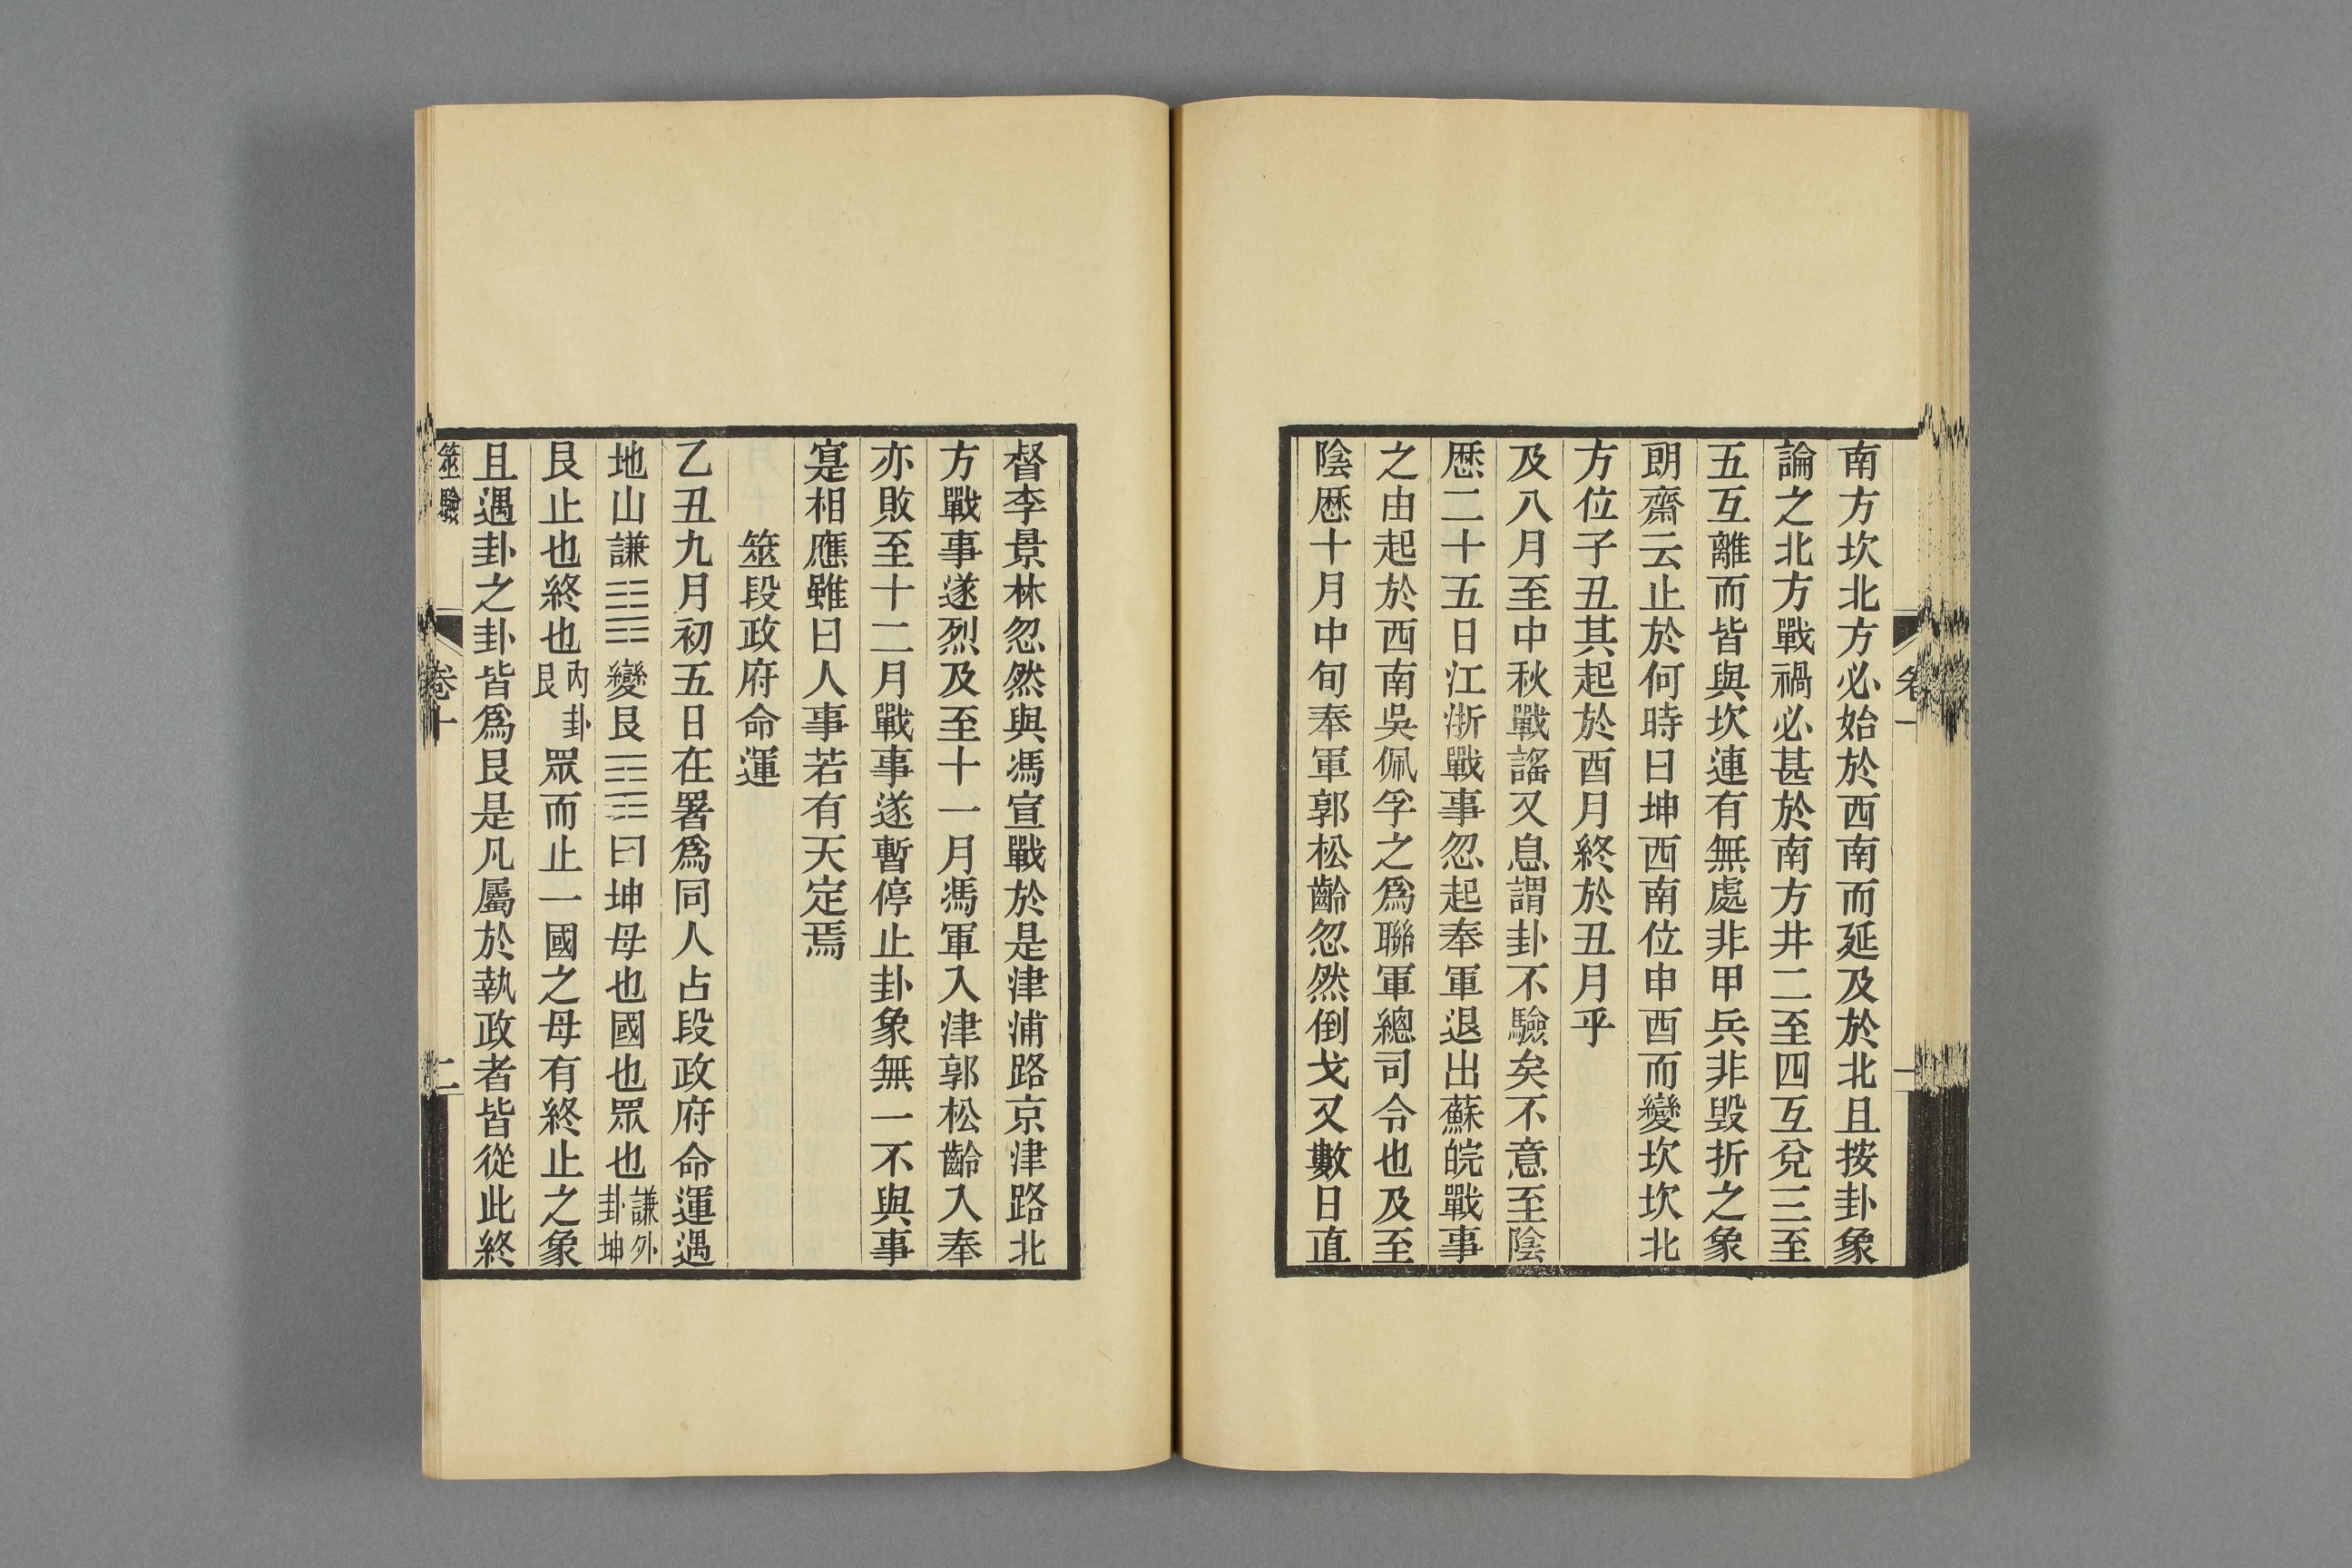 南方坎北方必始於西南而延及於北且按卦象
論之北方戰禍必甚於南方井二至四互兌三至
五互離而皆與坎連有無處非甲兵非毀折之象
朗齋云止於何時曰坤西南位申酉而變坎坎北
方位子丑其起於酉月終於丑月乎
及八月至中秋戰謠又息謂卦不驗矣不意至陰
厯二十五日江浙戰事忽起奉軍退出蘇皖戰事
之由起於西南吳佩孚之爲聯軍總司令也及至
陰厯十月中旬奉軍郭松齡忽然倒戈又數日直
督李景林忽然與馮宣戰於是津浦路京津路北
方戰事遂烈及至十一月馮軍入津郭松齡入奉
亦敗至十二月戰事遂暫停止卦象無一不與事
寔相應雖曰人事若有天定焉
筮段政府命運
乙丑九月初五日在署爲同人占段政府命運遇
地山謙䷎變艮䷳曰坤母也國也眾也謙外卦坤
艮止也終也內卦艮眾而止一國之母有終止之象
且遇卦之卦皆爲艮是凡屬於執政者皆從此終
筮驗
卷十
二